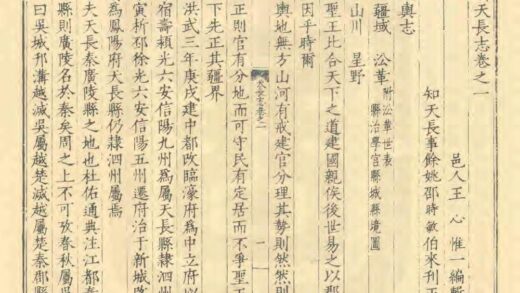 天長志卷之一
邑人王 心 惟一編輯
知天長事餘姚邵時敏伯來刊正
輿志
疆域 沿革 附沿革世表 縣治學宫縣城縣境圖
山川 星野
聖王比合天下之道建國親侯後世易之以郡
因乎時爾
輿地無方山河有戒建官分理其勢則然然則
一
正則官有分地而可守民有定居而不爭聖王
下先正其疆界
洪武三年庚戌建中都改臨濠府為中立府以
宿壽潁光六安信陽九州為屬天長縣隸泗州
寅析邳徐光六安信陽五州遷府治于新城改
為鳳陽府天長縣仍隸泗州屬焉
夫天長秦廣陵縣之地也杜佑通典注江都秦
縣則廣陵名於秦矣周之上不可攷春秋屬吳
曰吳城邗溝越滅吳屬越楚滅越屬楚秦郡縣